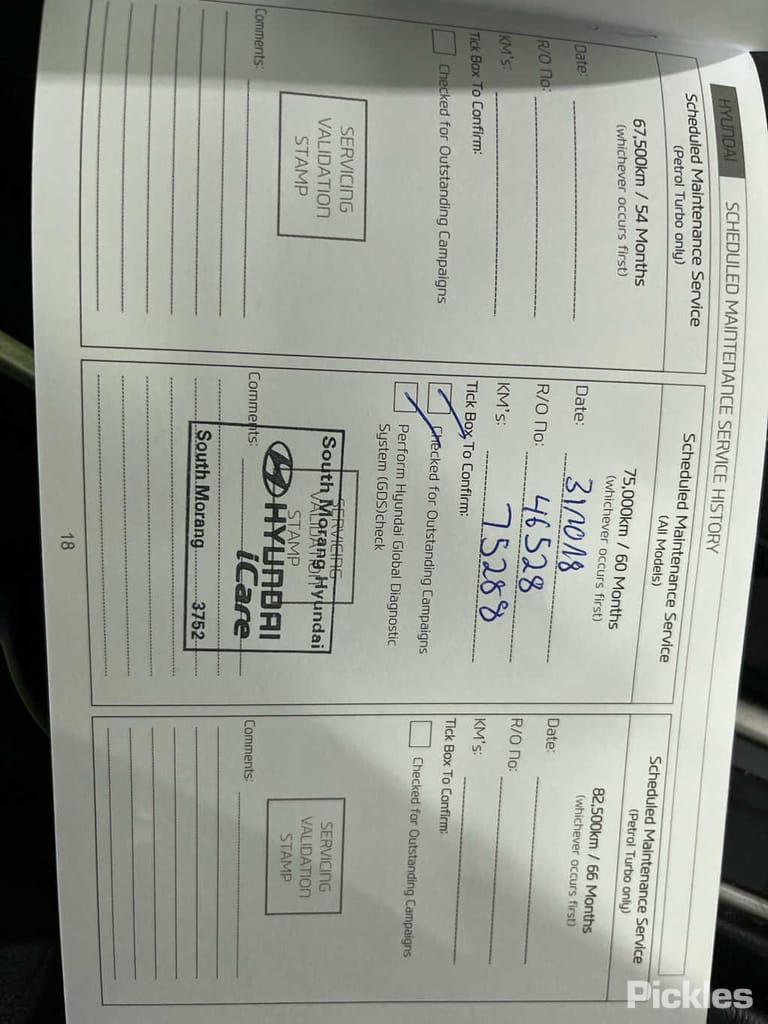 HYUNDAI SCHEDULED MAINTENANCE SERVICE HISTORY
Scheduled Maintenance Service
(Petrol Turbo only)
67,500km / 54 Months
(whichever occurs first)
Date:
R/O No:
KM's:
Tick Box To Confirm:
Checked for Outstanding Campaigns
SERVICING
VALIDATION
STAMP
Comments:
Scheduled Maintenance Service
(All Models)
75,000km / 60 Months
(whichever occurs first)
Date:
R/O No: 46528
KM's: 75288
Tick Box To Confirm:
Checked for Outstanding Campaigns
Perform Hyundai Global Diagnostic
System (GDS)check
SERVICING
VALIDATION
STAMP
South Morang Hyundai
HYUNDAI
iCare
South Morang 3752
Comments:
Scheduled Maintenance Service
(Petrol Turbo only)
82,500km / 66 Months
(whichever occurs first)
Date:
R/O No:
KM's:
Tick Box To Confirm:
Checked for Outstanding Campaigns
SERVICING
VALIDATION
STAMP
Comments:
18
Pickles